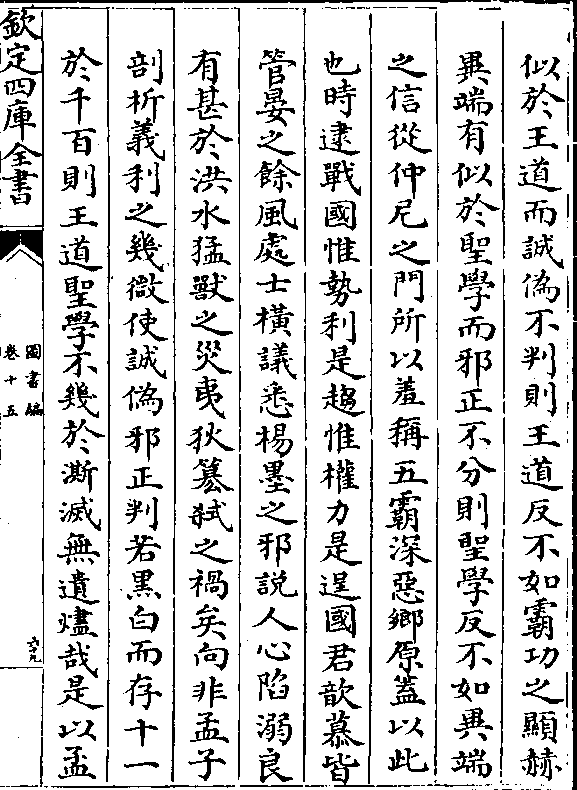 似於王道而誠偽不判則王道反不如霸功之顯赫
異端有似於聖學而邪正不分則聖學反不如異端
之信從仲尼之門所以羞稱五霸深惡鄉原蓋以此
也時逮戰國惟勢利是趨惟權力是逞國君歆慕皆
管晏之餘風處士橫議悉楊墨之邪說人心陷溺良
有甚於洪水猛獸之災夷狄簒弑之禍矣向非孟子
剖析義利之幾微使誠偽邪正判若黒白而存十一
於千百則王道聖學不幾於澌滅無遺燼哉是以孟
欽定四庫全書
圖書編
卷十五
六十九